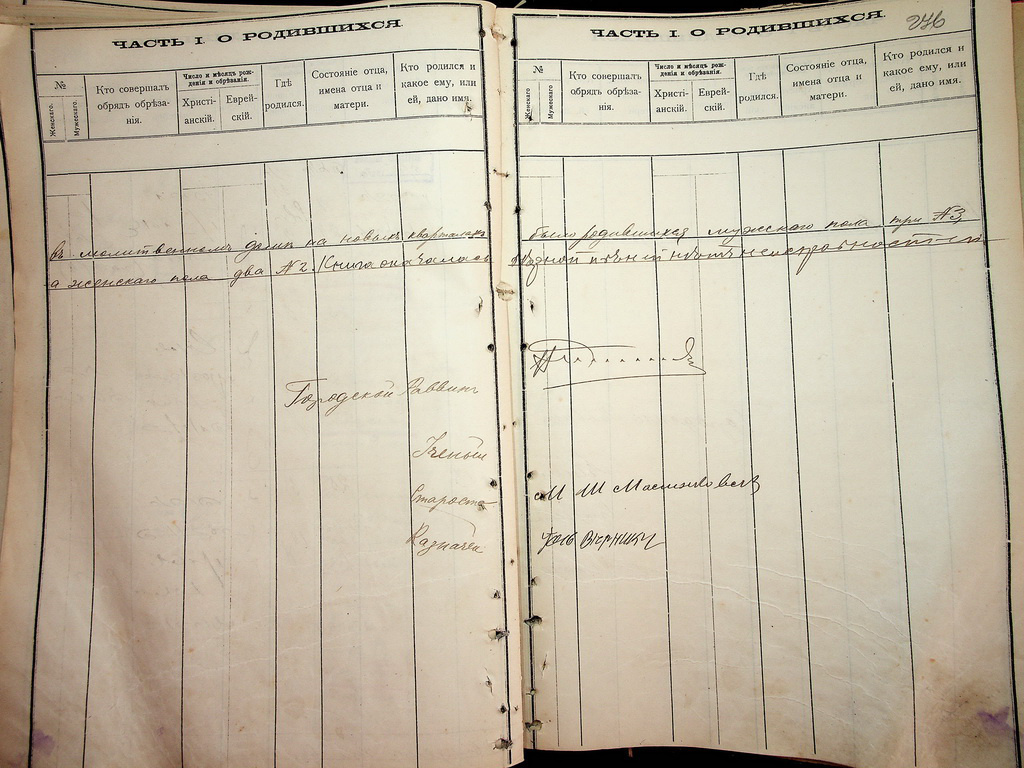 ЧАСТЬ I. О РОДИВШИХСЯ.
№
Женскаго.
Мужескаго.
Кто совершалъ обрядъ обрѣза-
нія.
Число и мѣсяцъ рож-
денія и обрѣзанія.
Христі-
анскій.
Еврей-
скій.
Гдѣ
родился.
Состояніе отца,
имена отца и
матери.
Кто родился и
какое ему, или
ей, дано имя.
въ молитвенномъ домѣ на новыхъ кварталахъ
а женскаго пола два №2.
Городской Раввинъ
Ученый
Староста
Казначей
ЧАСТЬ I. О РОДИВШИХСЯ.
276
№
Женскаго
Мужескаго
Кто совершалъ
обрядъ обрѣза-
нія.
Число и мѣсяцъ рож-
денія и обрѣзанія.
Христі-
анскій.
Еврей-
скій.
Гдѣ
родился.
Состояніе отца,
имена отца и
матери.
Кто родился и
какое ему, или
ей, дано имя.
было родившихся мужскаго пола три №3
М Ш